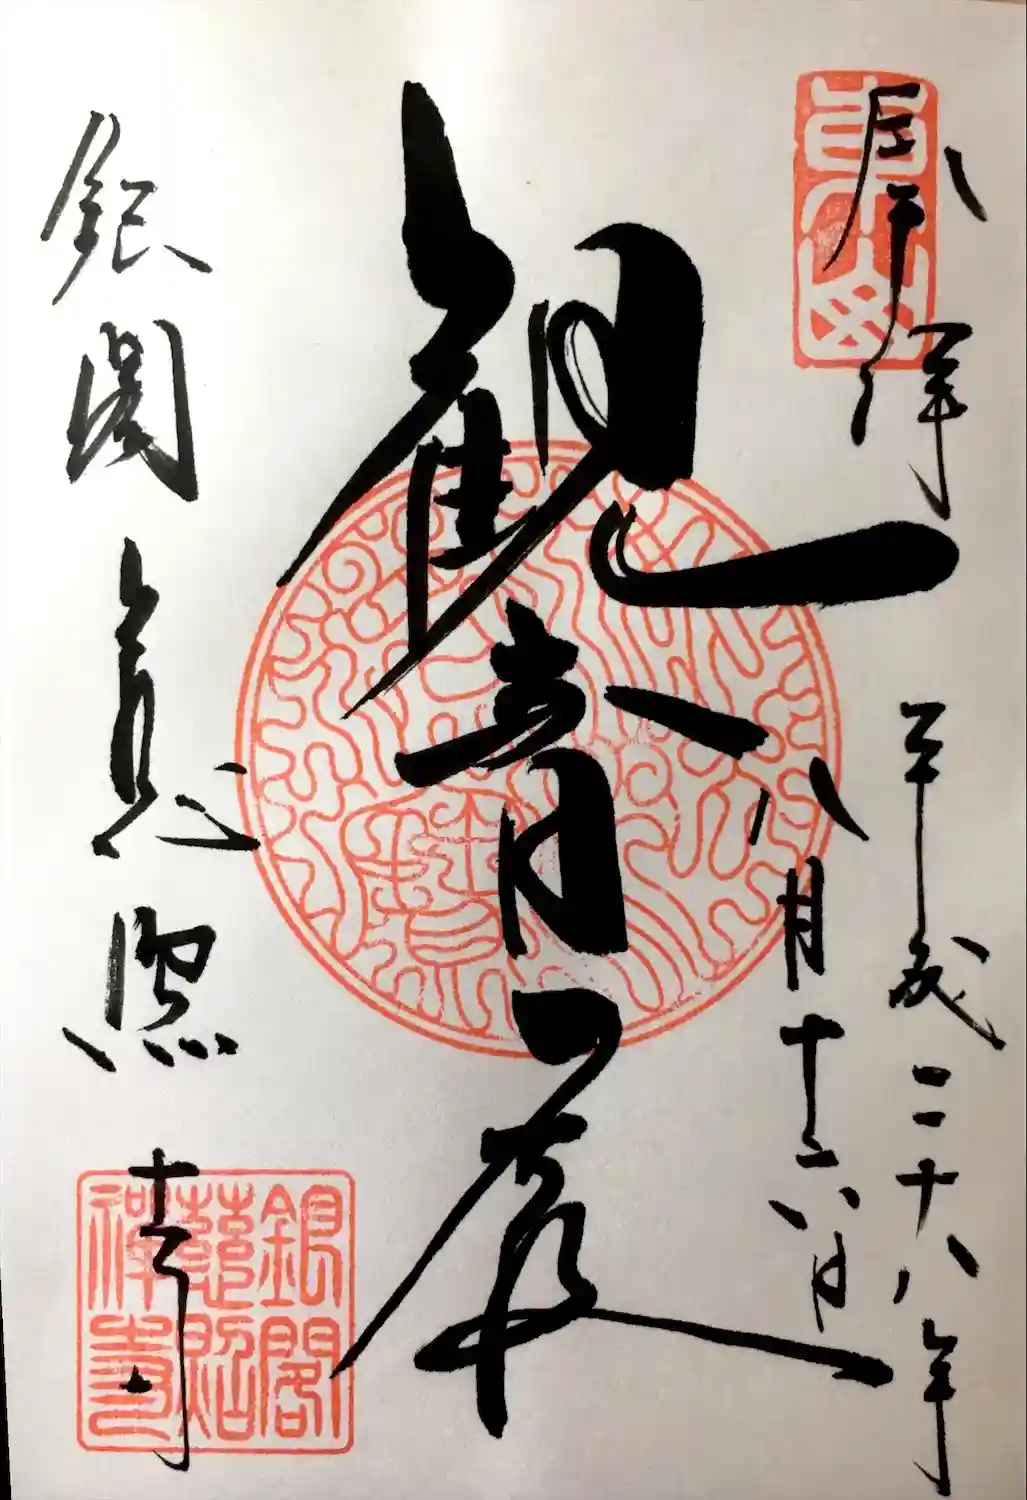 奉拝
平成二十八年
八月十六日
観音殿
銀閣慈照寺
東山
銀閣
慈照
禅寺